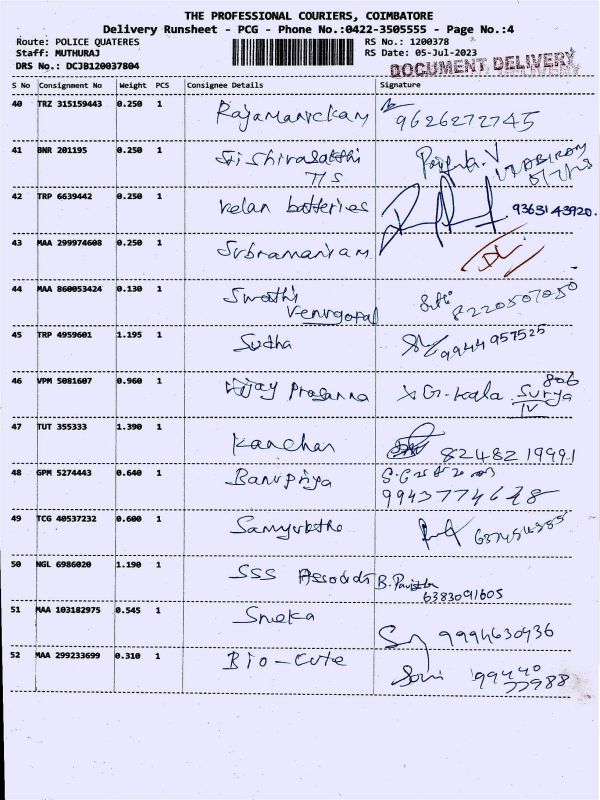 THE PROFESSIONAL COURIERS, COIMBATORE
Delivery Runsheet - PCG - Phone No.:0422-3505555 - Page No.:4
Route: POLICE QUATERES RS No.: 1200378
Staff: MUTHURAJ RS Date: 05-Jul-2023
DRS No.: DCJB120037804 DOCUMENT DELIVERY
S No Consignment No Weight PCS Consignee Details Signature
40 TRZ 315159443 0.250 1 Rajamanickam 9626272745
41 BNR 201195 0.250 1 Sri Shivasakthi
T/S
42 TRP 6639442 0.250 1 Velan batteries 9363143920.
43 MAA 299974608 0.250 1 Subramaniyam
44 MAA 860053424 0.130 1 Swathi 8220507050
Venugopal
45 TRP 4959601 1.195 1 Sudha 9944957525
46 VPM 5081607 0.960 1 Vijay Prasanna G. Kala Surya 806
IV
47 TUT 355333 1.390 1 Kanchan 82482 19991
48 GPM 5274443 0.640 1 Banupriya
49 TCG 40537232 0.600 1
50 NGL 6986020 1.190 1 SSS B. Pavithra
6383091605
51 MAA 103182975 0.545 1 Sneka 9994630436
52 MAA 299233699 0.310 1 Bio-Cute 99440
77988